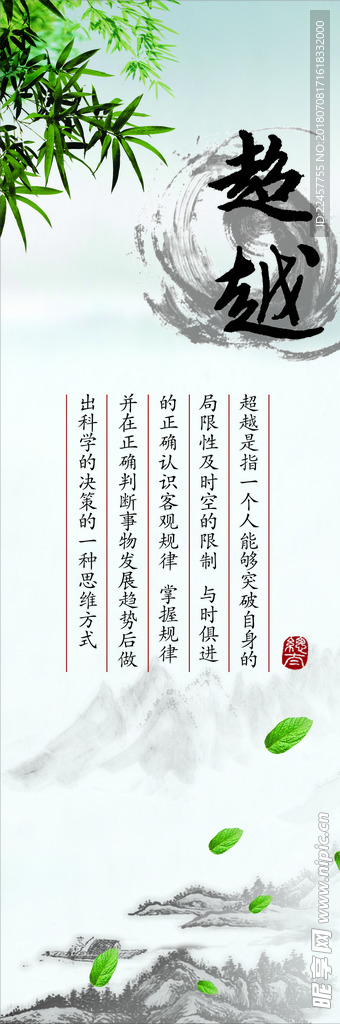 超越
超越是指一个人能够突破自身的
局限性及时空的限制 与时俱进
的正确认识客观规律 掌握规律
并在正确判断事物发展趋势后做
出科学的决策的一种思维方式
ID:22457755 NO:20180708171618332000
昵享网 www.nipic.cn